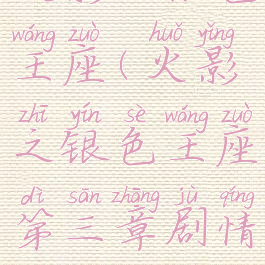 wáng zuò huǒ yǐng
王座(火影
zhī yín sè wáng zuò
之银色王座
dì sān zhāng jù qíng
第三章剧情